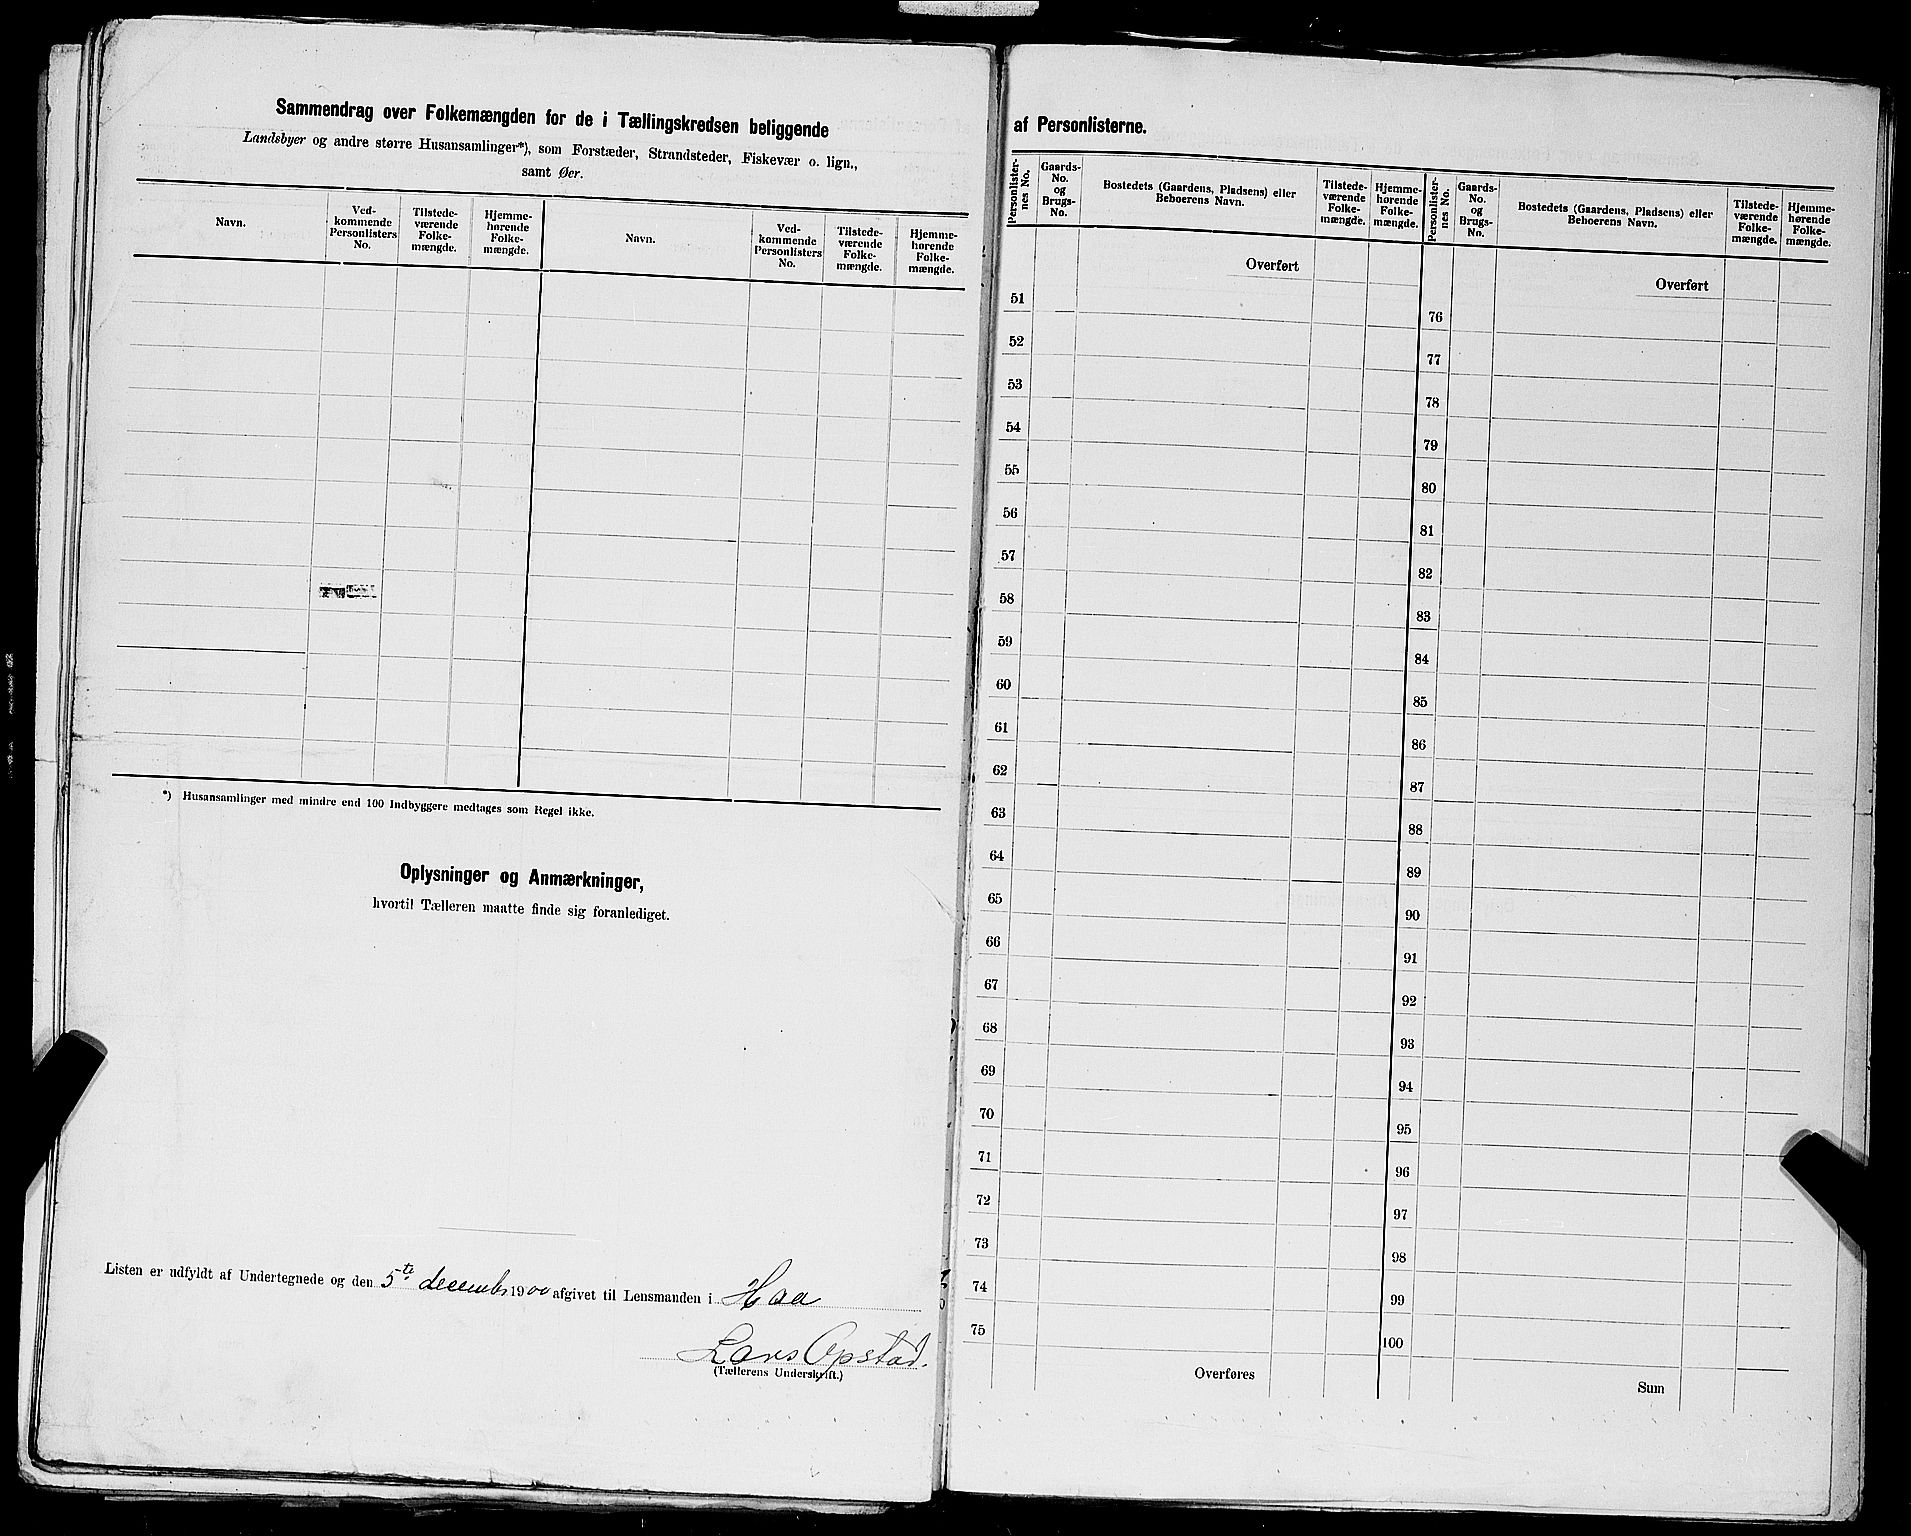 Sammendrag over Folkemængden for de i Tællingskredsen beliggende
Landsbyer og andre større Husansamlinger*), som Forstæder, Strandsteder, Fiskevær o. lign.,
samt Øer.
Navn.
Ved-
kommende
Personlisters
No.
Tilstede-
værende
Folke-
mængde.
Hjemme-
hørende
Folke-
mængde.
Navn.
Ved-
kommende
Personlisters
No.
Tilstede-
værende
Folke-
mængde.
Hjemme-
hørende
Folke-
mængde.
*) Husansamlinger med mindre end 100 Indbyggere medtages som Regel ikke.
Oplysninger og Anmærkninger,
hvortil Tælleren maatte finde sig foranlediget.
Listen er udfyldt af Undertegnede og den 5te decembr 1900 afgivet til Lensmanden i Haa
Lars Opstad.
(Tællerens Underskrift.)
af Personlisterne.
Personlister-
nes No.
Gaards-
No.
og
Brugs-
No.
Bostedets (Gaardens, Pladsens) eller
Beboerens Navn.
Tilstede-
værende
Folke-
mængde.
Hjemme-
hørende
Folke-
mængde.
Personlister-
nes No.
Gaards-
No.
og
Brugs-
No.
Bostedets (Gaardens, Pladsens) eller
Beboerens Navn.
Tilstede-
værende
Folke-
mængde.
Hjemme-
hørende
Folke-
mængde.
Overført
51
52
53
54
55
56
57
58
59
60
61
62
63
64
65
66
67
68
69
70
71
72
73
74
75
Overføres
Overført
76
77
78
79
80
81
82
83
84
85
86
87
88
89
90
91
92
93
94
95
96
97
98
99
100
Sum